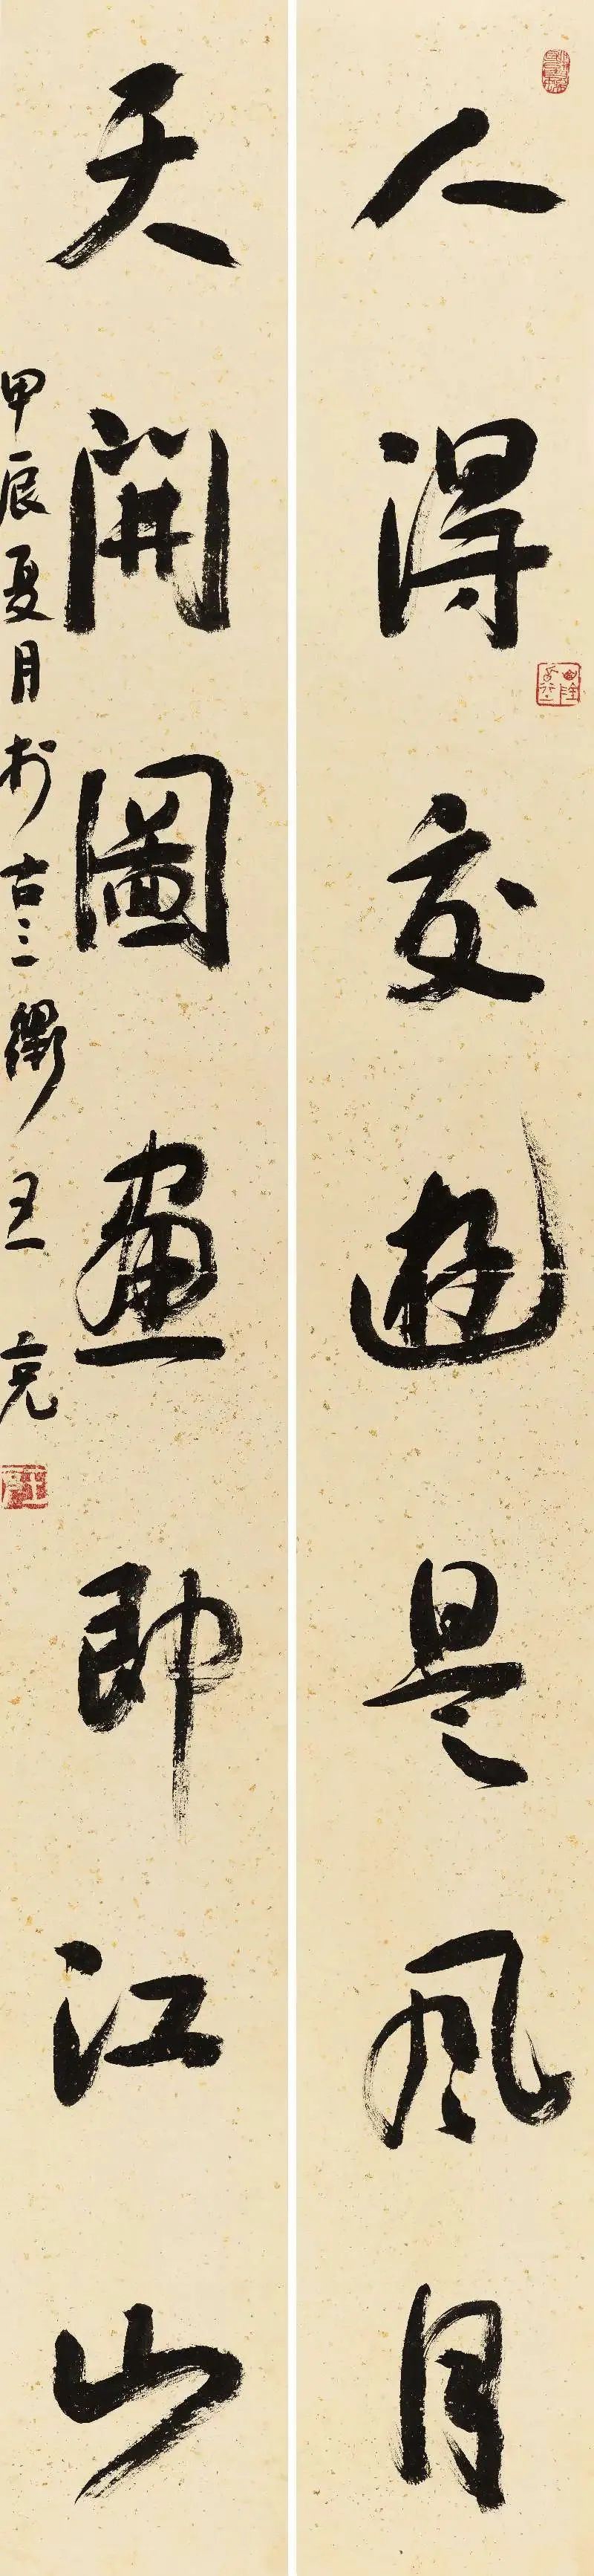 人得交遊是風月
天開圖畫即江山
甲辰夏月於古三衢 王亮